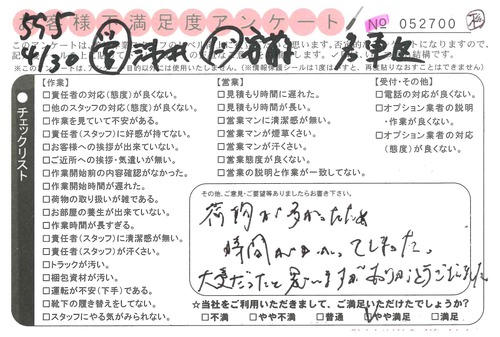 お客様満足度アンケート
No 052700
【作業】
□責任者の対応(態度)が良くない。
□他のスタッフの対応(態度)が良くない。
□作業を見ていて不安がある。
□責任者(スタッフ)に好感が持てない。
□お客様への挨拶が出来ていない。
□ご近所への挨拶・気遣いが無い。
□作業開始前の内容確認がなかった。
□作業開始時間が遅れた。
□荷物の取り扱いが雑である。
□お部屋の養生が出来ていない。
□作業時間が長すぎる。
□責任者(スタッフ)に清潔感が無い。
□責任者(スタッフ)が汗くさい。
□トラックが汚い。
□梱包資材が汚い。
□運転が不安(下手)である。
□靴下の履き替えをしてない。
□スタッフにやる気がみられない。
【営業】
□見積もり時間に遅れた。
□見積もり時間が長い。
□営業マンに清潔感が無い。
□営業マンが煙草くさい。
□営業マンが汗くさい。
□営業態度が良くない。
□営業の説明と作業が一致してない。
【受付・その他】
□電話の対応が良くない。
□オプション業者の説明
・作業が良くない。
□オプション業者の対応
(態度)が良くない。
●チェックリスト
その他、ご意見・ご要望等ありましたらお書き下さい。
荷物が多かったため
時間がかかってしまった。
大変だったと思いますがありがとうございました
☆当社をご利用いただきまして、ご満足いただけたでしょうか?
□不満 □やや不満 □普通 □やや満足 □満足